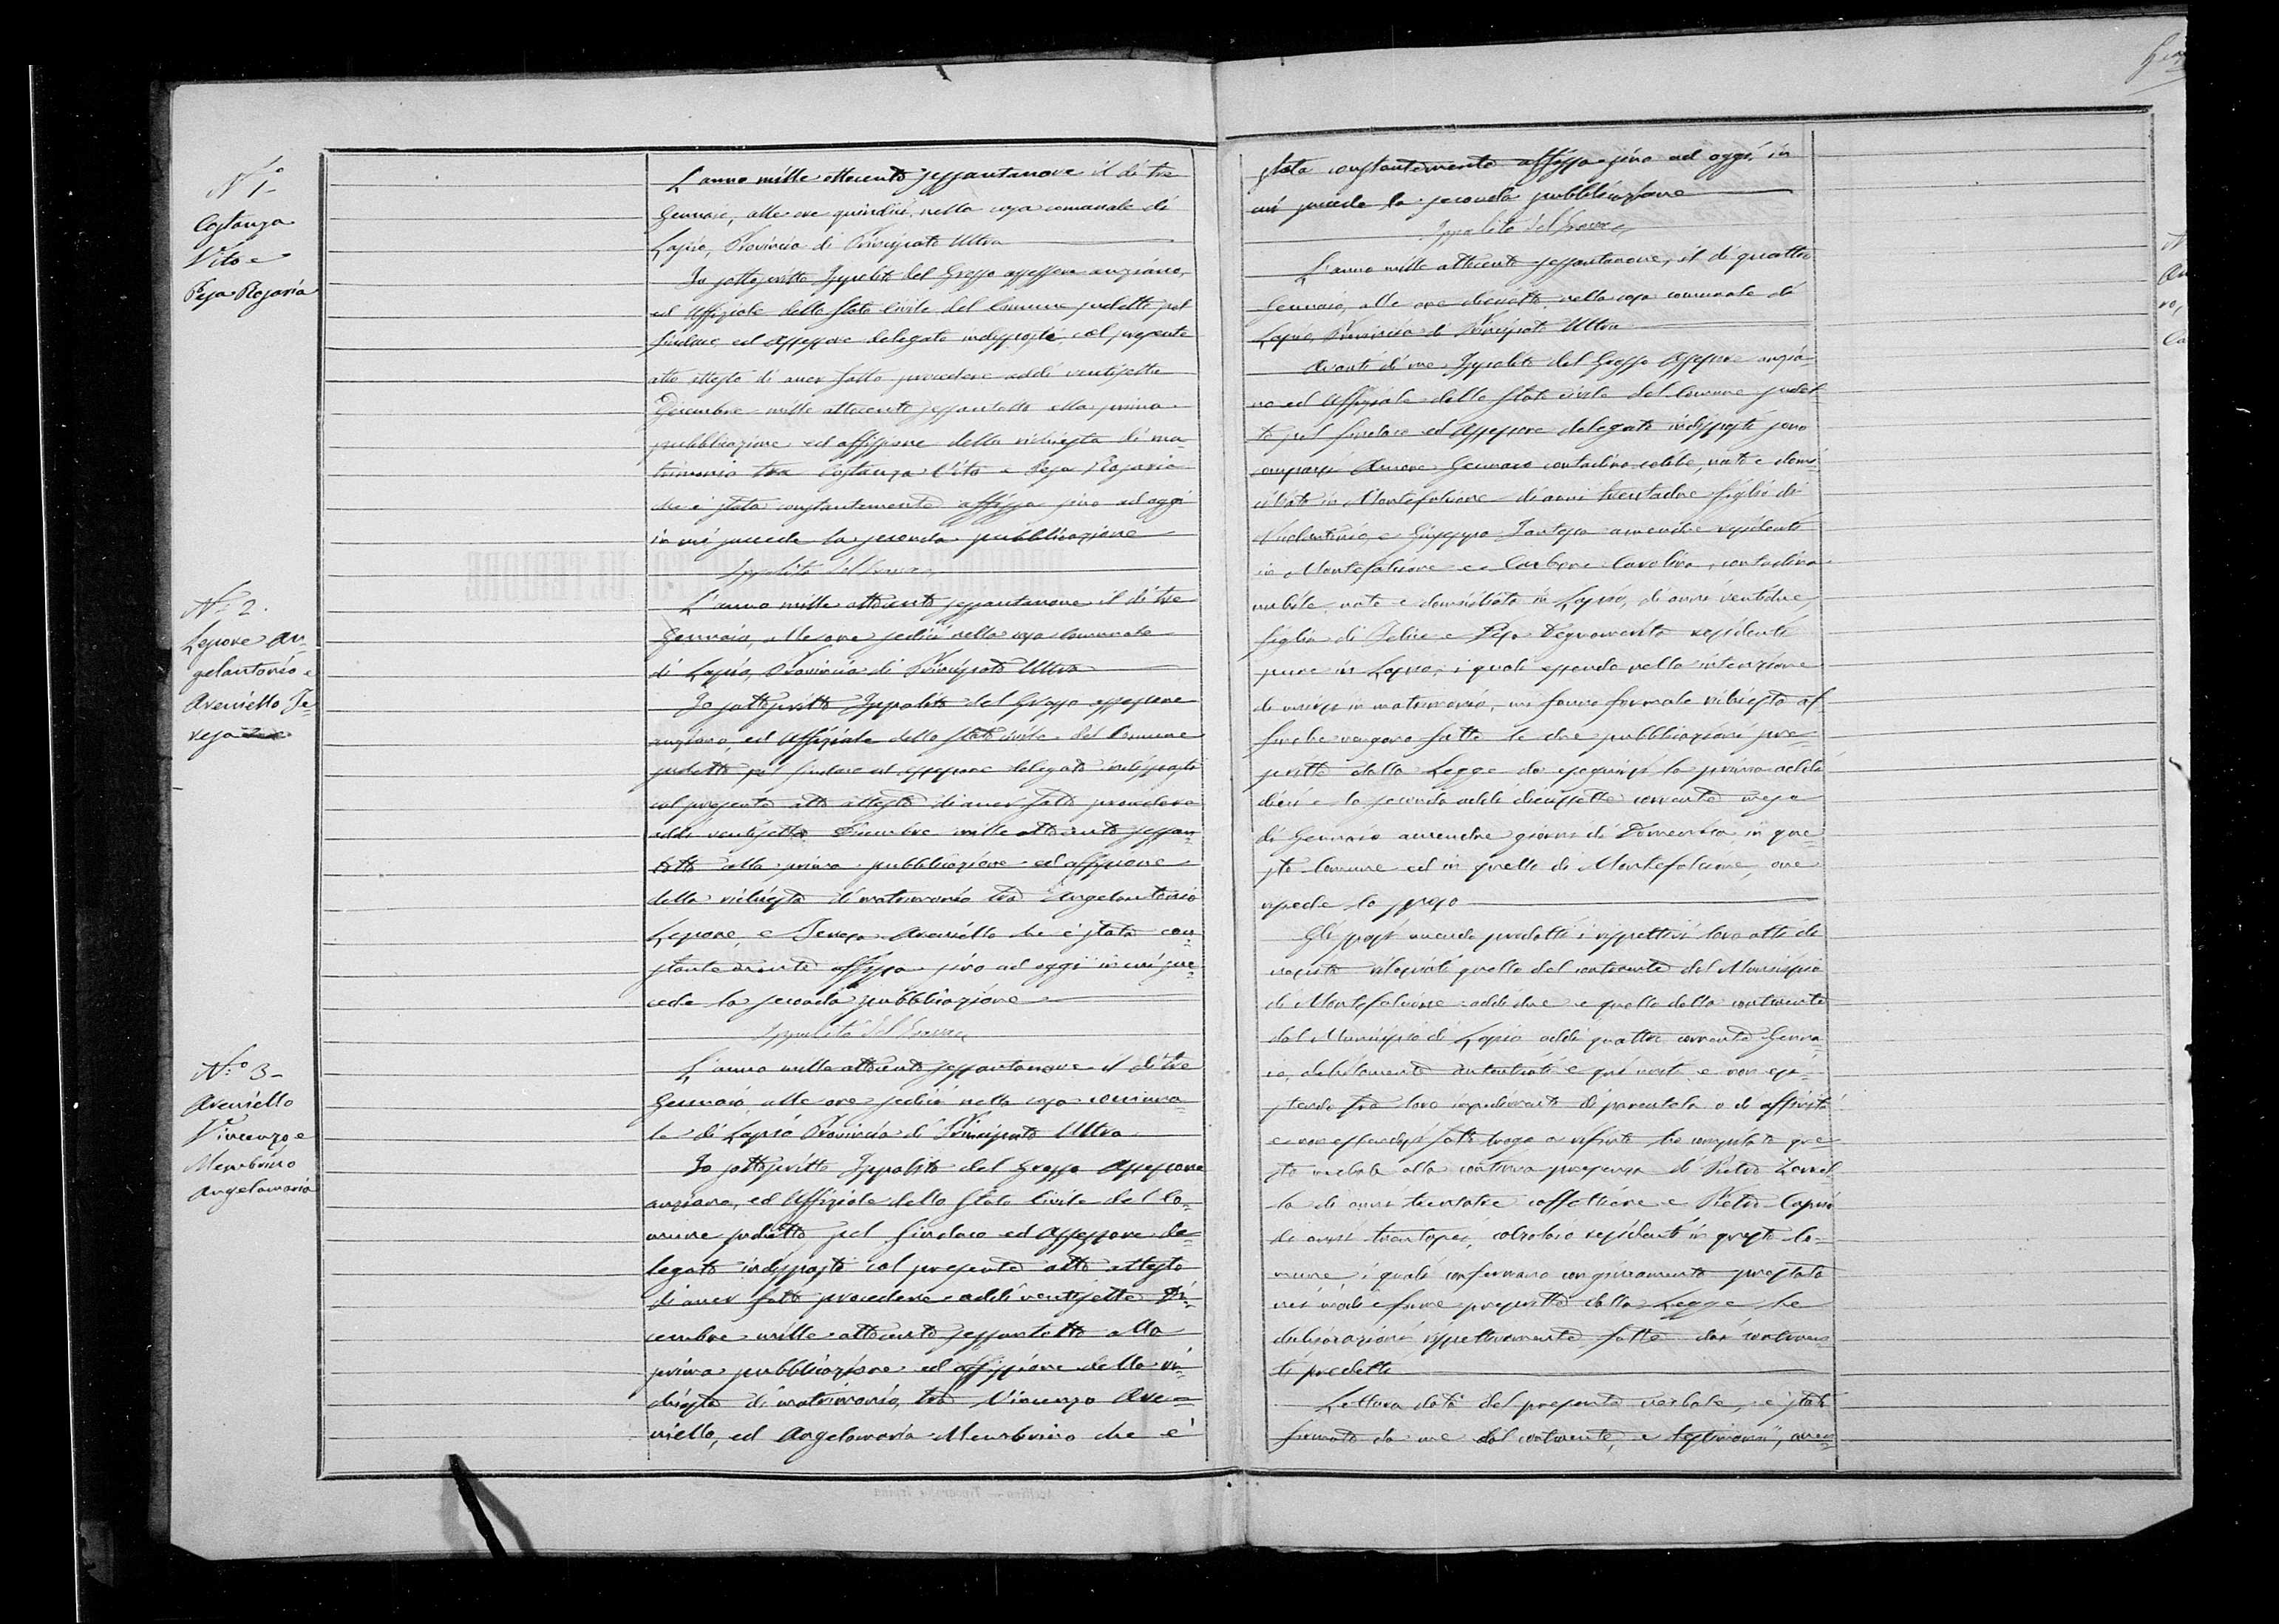 N.° 1°
Costanza
Vito e
Pesa Rosaria
L'anno mille ottocento sessantanove il dì tre
Gennaio, alle ore quindici, nella casa comunale di
Lapio, Provincia di Principato Ultra
Io sottoscritto Ippolito del Grosso assessore anziano,
ed Uffiziale dello Stato Civile del Comune sudetto pel
Sindaco, ed Assessore delegato indisposti, col presente
atto attesto di aver fatto procedere addì ventisette
Dicembre mille ottocento sessantotto alla prima
pubblicazione ed affissione della richiesta di ma-
trimonio tra Costanza Vito e Pesa Rosaria
che è stata constantemente affissa sino ad oggi
in cui succede la seconda pubblicazione
Ippolito del Grosso
N.° 2.
Lepore An-
gelantonio e
Aveniello Te-
resa
L'anno mille ottocento sessantanove il dì tre
Gennaio, alle ore sedici nella casa Comunale
di Lapio, Provincia di Principato Ultra
Io sottoscritto Ippolito del Grosso assessore
anziano, ed Uffiziale dello Stato Civile del Comune
sudetto pel Sindaco ed assessore delegato indisposti
col presente atto attesto di aver fatto procedere
addì ventisette Dicembre mille ottocento sessan-
totto alla prima pubblicazione ed affissione
della richiesta di matrimonio tra Angelantonio
Lepore, e Teresa Aveniello che è stata con-
stantemente affissa sino ad oggi in cui suc-
cede la seconda pubblicazione
Ippolito del Grosso
N.° 3-
Aveniello
Vincenzo e
Membrino
Angelamaria
L'anno mille ottocento sessantanove il dì tre
Gennaio, alle ore sedici nella casa comuna-
le di Lapio Provincia di Principato Ultra
Io sottoscritto Ippolito del Grosso Assessore
anziano, ed Uffiziale dello Stato Civile del Co-
mune sudetto pel Sindaco ed Assessore de-
legato indisposti col presente atto attesto
di aver fatto procedere addì ventisette Di-
cembre mille ottocento sessantotto alla
prima pubblicazione ed affissione della ri-
chiesta di matrimonio, tra Vincenzo Ave-
niello, ed Angelamaria Membrino che è
stata constantemente affissa sino ad oggi, in
cui succede la seconda pubblicazione
Ippolito del Grosso
L'anno mille ottocento sessantanove, il dì quattro
Gennaio, alle ore diciotto, nella casa comunale di
Lapio, Provincia di Principato Ultra
Avanti di me Ippolito del Grosso Assessore anzia-
no ed Uffiziale dello Stato Civile del Comune sudet-
to pel Sindaco ed Assessore delegato indisposti sono
comparsi Gennaro contadino celibe, nato e domi-
ciliato in Montefalcione di anni trentadue figlio di
e Giuseppa amendue residenti
in Montefalcione e Carbone Carolina, contadina
nubile nata e domiciliata in Lapio, di anni ventidue,
figlia di Felice e Pesa residenti
pure in Lapio, i quali essendo nella intenzione
di unirsi in matrimonio, mi fanno formale richiesta af-
finche vengano fatte le due pubblicazioni pre-
scritte dalla Legge da eseguirsi la prima addì
dieci e la seconda addì diciassette corrente mese
di Gennaio amendue giorni di Domenica in que-
sto Comune ed in quello di Montefalcione, ove
risiede lo sposo
Gli sposi avendo prodotti i rispettivi loro atti di
nascita rilasciati quello del contraente dal Municipio
di Montefalcione addì due e quello della contraente
dal Municipio di Lapio addì quattro corrente Genna-
io, debitamente autenticati e non esi-
stendo fra loro impedimento di parentela o di affinità
e non essendosi fatto luogo a rifiuto ho compilato que-
sto verbale alla continua presenza di Pietro
di anni trentatre caffettiere e Pietro Caprio
di anni trentasei, calzolaio residenti in questo Co-
mune, i quali confermano con giuramento prestato
nei modi e forme prescritte dalla Legge le
dichiarazioni rispettivamente fatte dai contraen-
ti predetti
Lettura data del presente verbale, è stato
firmato da me dal contraente, e testimoni, aven-